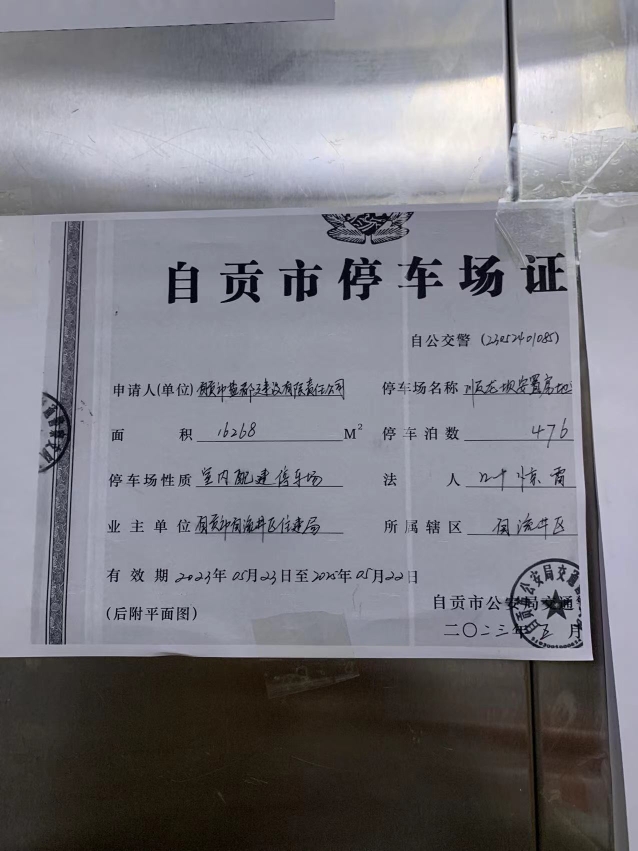 自贡市停车场证
自公交警 (23052401085)
申请人(单位) 自贡市盐都建设有限责任公司 停车场名称 龙坝安置房地
面积 16268 M² 停车泊数 476
停车场性质 室内配建停车场 法人 叶惊雷
业主单位 自贡市自流井区住建局 所属辖区 自流井区
有效期 2023年05月23日至2025年05月22日
(后附平面图) 自贡市公安局交通
二〇二三年五月